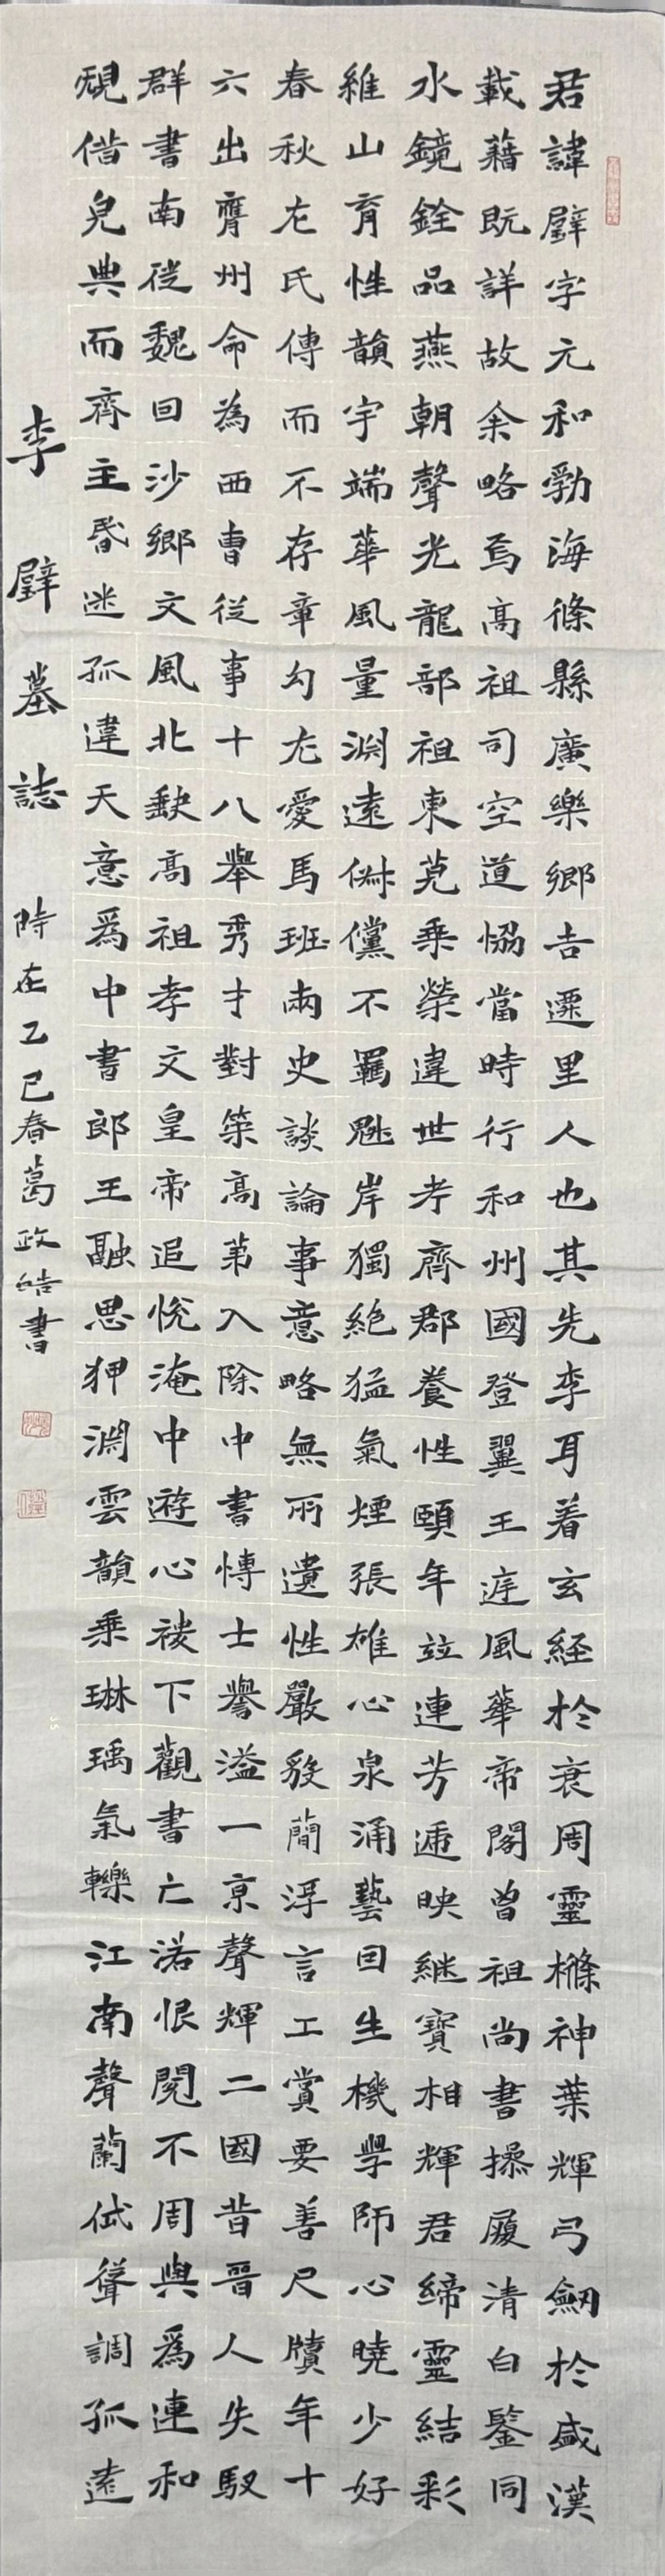 君諱璧字元和勃海條縣廣樂鄉吉遷里人也其先李耳着玄經於衰周靈樤神葉輝弓劒於盛漢
載藉既詳故余略焉高祖司空道恊當時行和州國登翼王庭風華帝閣曾祖尚書操履清白鑒同
水鏡銓品燕朝聲光龍部祖東莞乘榮違世考齊郡養性頤年竝連芳遞映継寶相輝君締靈結彩
維山育性韻宇端華風量淵遠俶儻不羈魁岸獨絶猛氣煙張雄心泉涌藝因生機學師心曉少好
春秋左氏傳而不存章勾尤愛馬班兩史談論事意略無所遺性嚴毅蕳浮言工賞要善尺牘年十
六出膺州命為西曹從事十八舉秀才對策高第入除中書博士譽溢一京聲輝二國昔晉人失馭
群書南徙魏因沙鄉文風北缺高祖孝文皇帝追悅淹中遊心稷下觀書亡落恨閱不周與為連和
規借完典而齊主昏迷孤違天意為中書郎王融思狎淵雲韻乘琳瑀氣轢江南聲蘭岱聳調孤遠
李璧墓誌 時在乙巳春葛政皓書